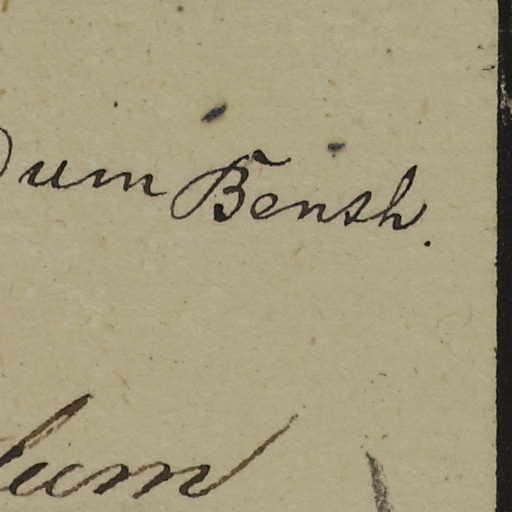 um Bensh.
um